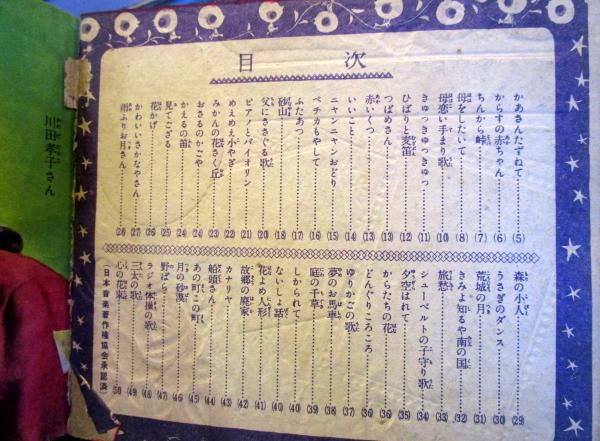 目次
かあさんたずねて……(5)
からすの赤ちゃん……(6)
ちんから峠……(7)
母をしたいて……(8)
母恋い手まり歌……(10)
きゅっきゅっきゅっ……(11)
ひばりと麦笛……(12)
つばめさん……(13)
赤いくつ……(13)
いいこと……(14)
ニャンニャンおどり……(15)
ペチカもやして……(16)
ふたあつ……(17)
砂山……(18)
父にささぐる歌……(20)
ピアノとバイオリン……(21)
めえめえ小やぎ……(22)
みかんの花さく丘……(23)
おさるのかごや……(24)
かえるの笛……(24)
見てござる……(25)
花かげ……(26)
かわいいさかなやさん……(27)
雨ふりお月さん……(28)
森の小人……(29)
うさぎのダンス……(30)
荒城の月……(31)
きみよ知るや南の国……(32)
旅愁……(33)
シューベルトの子守り歌……(34)
夕空はれて……(35)
からたちの花……(36)
どんぐりころころ……(36)
ゆりかごの歌……(37)
夢のお馬車……(38)
庭の千草……(39)
しかられて……(40)
ないしょ話……(40)
花よめ人形……(41)
故郷の廃家……(42)
カナリヤ……(43)
船頭さん……(44)
あの町この町……(45)
月の砂漠……(46)
野ばら……(47)
ラジオ体操の歌……(48)
三太の歌……(49)
心の花束……(50)
(日本音楽著作権協会承認済)
川田孝子さん